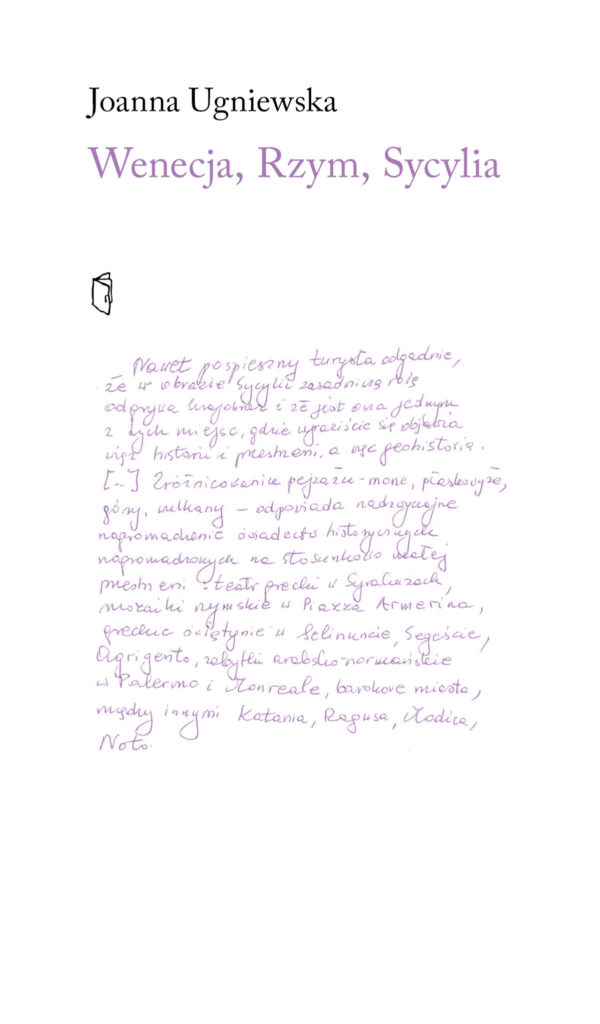 Joanna Ugniewska
Wenecja, Rzym, Sycylia
Nawet pospieszny turysta odgadnie,
że w obrazie Sycylii zasadniczą rolę
odgrywa krajobraz i że jest ona jednym
z tych miejsc, gdzie wyraziście się objawia
więź historii i przestrzeni, a więc geohistoria.
[...] Zróżnicowanie pejzażu - morze, płaskowyże,
góry, wulkany - odpowiada nadzwyczajne
nagromadzenie świadectw historycznych
nagromadzonych na stosunkowo małej
przestrzeni: teatr grecki w Syrakuzach,
mozaiki rzymskie w Piazza Armerina,
greckie świątynie w Selinuncie, Segeście,
Agrigento, zabytki arabsko-normańskie
w Palermo i Monreale, barokowe miasta,
między innymi Katania, Ragusa, Modica,
Noto.